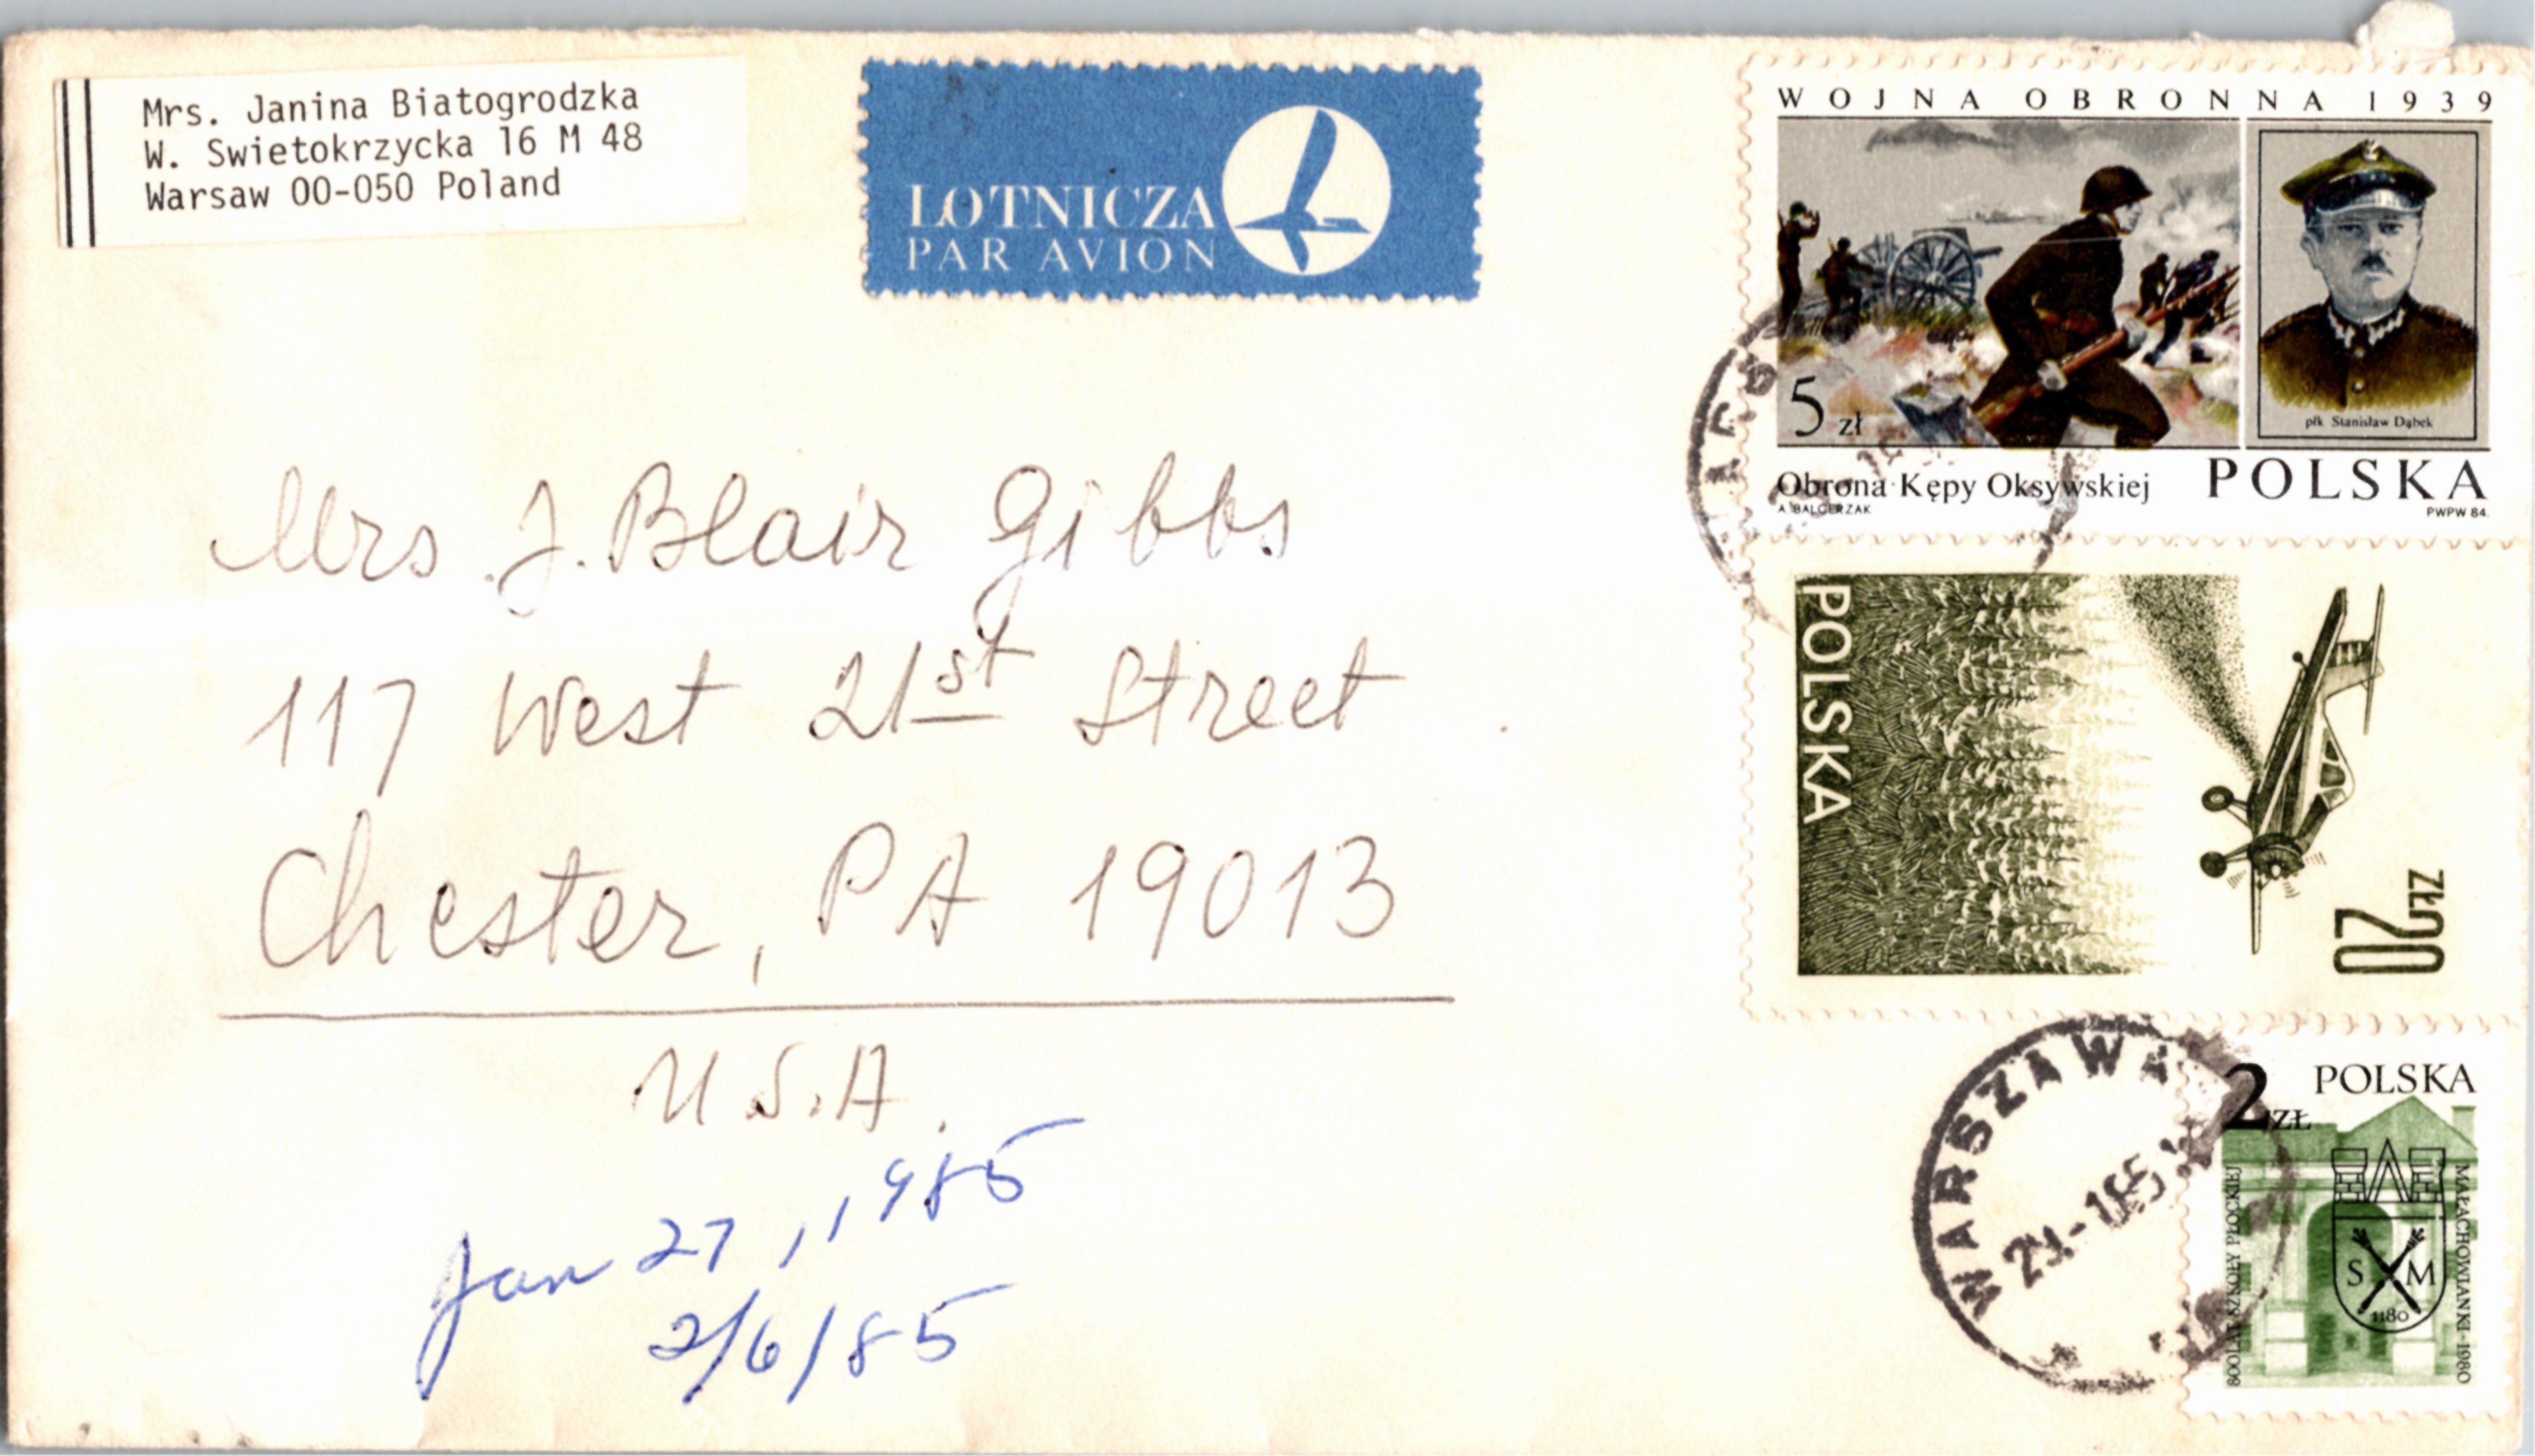 Mrs. Janina Biatogrodzka
W. Swietokrzycka 16 M 48
Warsaw 00-050 Poland
LOTNICZA
PAR AVION
WOJNA OBRONNA 1939
5 zł
płk Stanisław Dąbek
Obrona Kępy Oksywskiej
POLSKA
A. BALCERZAK
PWPW 84.
Mrs. J. Blair Gibbs
117 West 21st Street
Chester, PA 19013
U.S.A.
Jan 27, 1985
2/6/85
POLSKA
20 ZŁ
WARSZAWA
POLSKA
2 ZŁ
800 LAT SZKOŁY PŁOCKIEJ
MAŁACHOWIANKI-1980
S M
1180